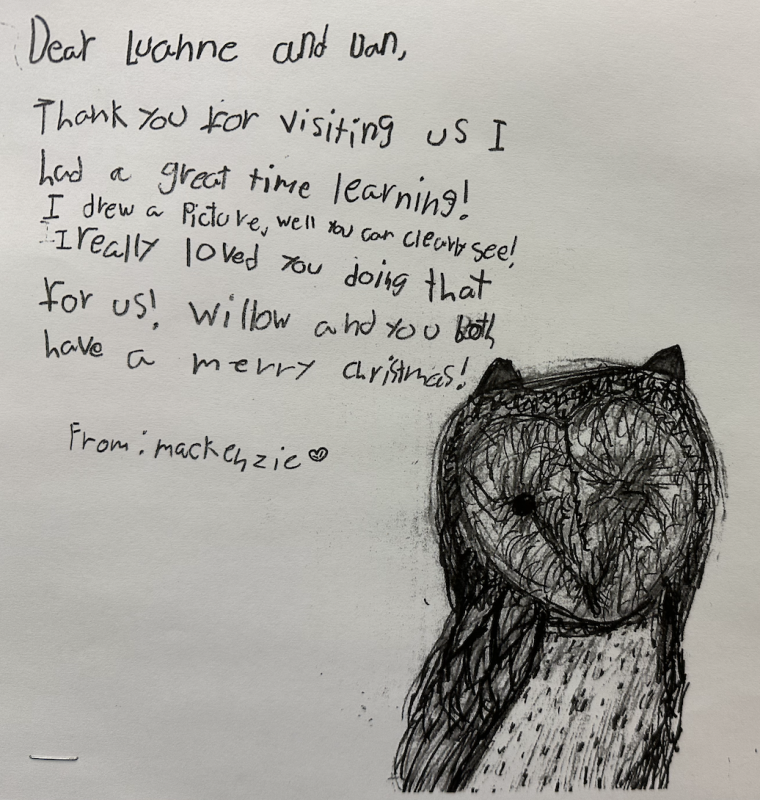 Dear Luanne and Dan,
Thank you for visiting us I
had a great time learning!
I drew a Picture, well you can clearly see!
I really loved you doing that
for us! Willow and you both
have a merry christmas!
From: mackenzie